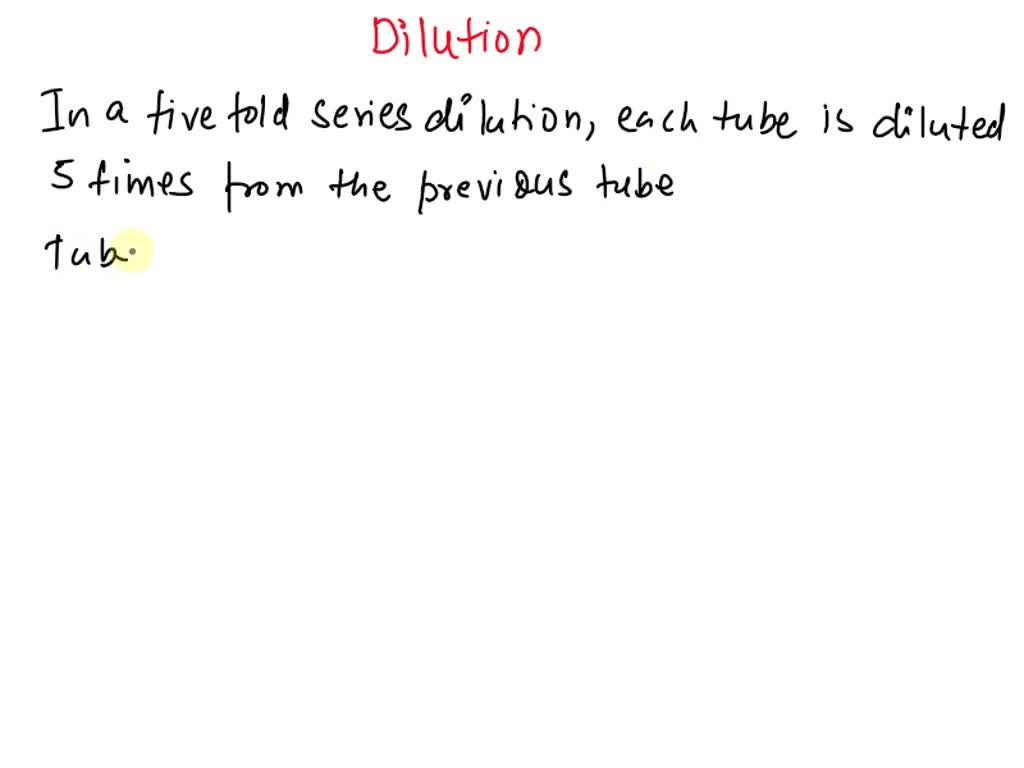 Dilution
In a five fold series dilution, each tube is diluted
5 times from the previous tube
tub